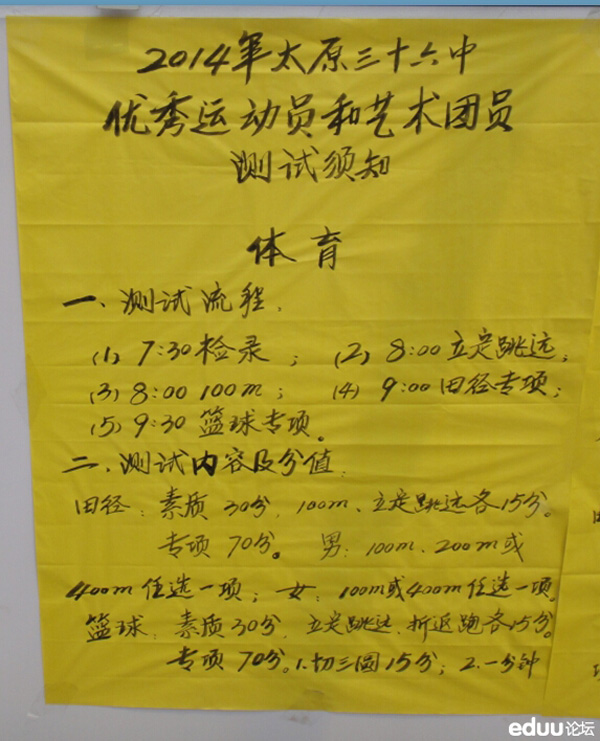 2014年太原三十六中
优秀运动员和艺术团员
测试须知
体育
一、测试流程.
(1) 7:30 检录 ; (2) 8:00 立定跳远;
(3) 8:00 100m ; (4) 9:00 田径专项;
(5) 9:30 篮球专项。
二、测试内容及分值.
田径: 素质30分, 100m、立定跳远各15分。
专项70分。 男: 100m、200m或
400m任选一项; 女: 100m或400m任选一项。
篮球: 素质30分, 立定跳远、折返跑各15分。
专项70分。1.切三圆15分; 2.一分钟
eduu论坛